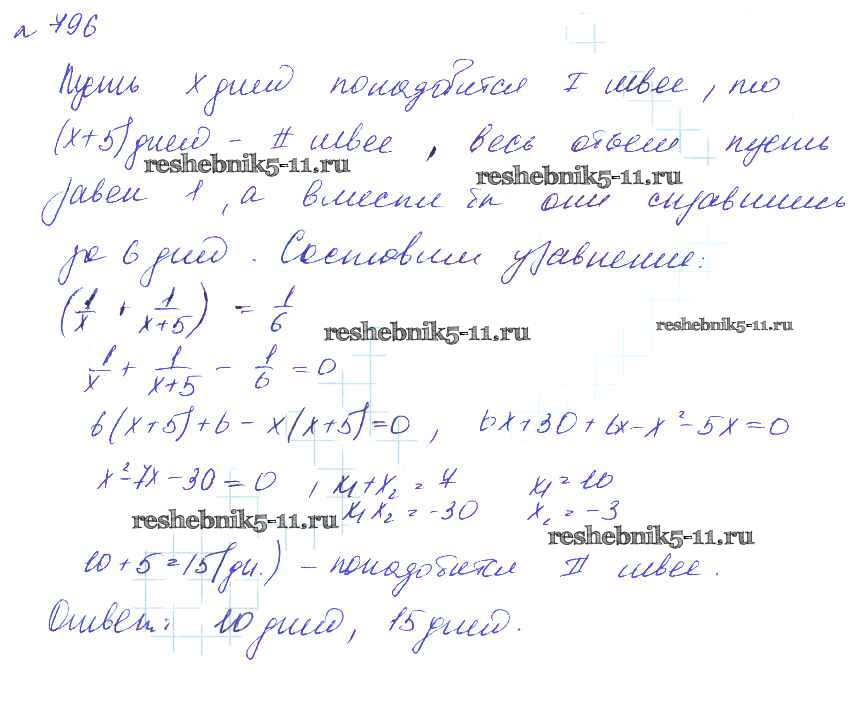 № 796
Пусть х дней понадобится I швее, то
(x+5) дней – II швее, весь объем пусть
reshebnik5-11.ru reshebnik5-11.ru
равен 1, а вместе бы они справились
за 6 дней. Составим уравнение:
(1/x + 1/(x+5)) = 1/6
reshebnik5-11.ru reshebnik5-11.ru
1/x + 1/(x+5) – 1/6 = 0
6(x+5)+6 – x(x+5)=0, 6x+30+6x–x²–5x=0
x²–7x–30=0, x₁+x₂=7 x₁=10
x₁x₂=–30 x₂=–3
reshebnik5-11.ru reshebnik5-11.ru
10+5=15(дн.) – понадобится II швее.
Ответ: 10 дней, 15 дней.